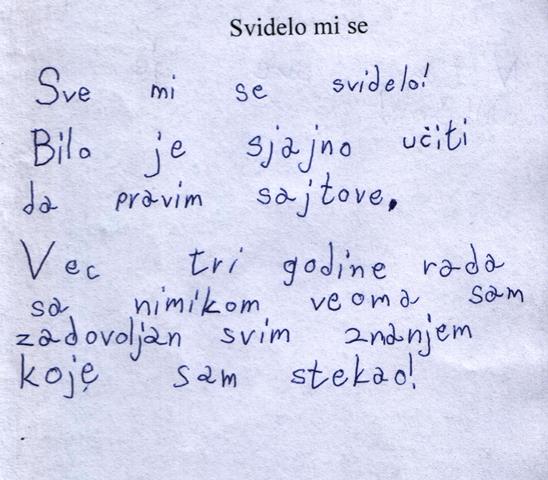 Svidelo mi se
Sve mi se svidelo!
Bilo je sjajno učiti
da pravim sajtove.
Vec tri godine rada
sa nimikom veoma sam
zadovoljan svim znanjem
koje sam stekao!